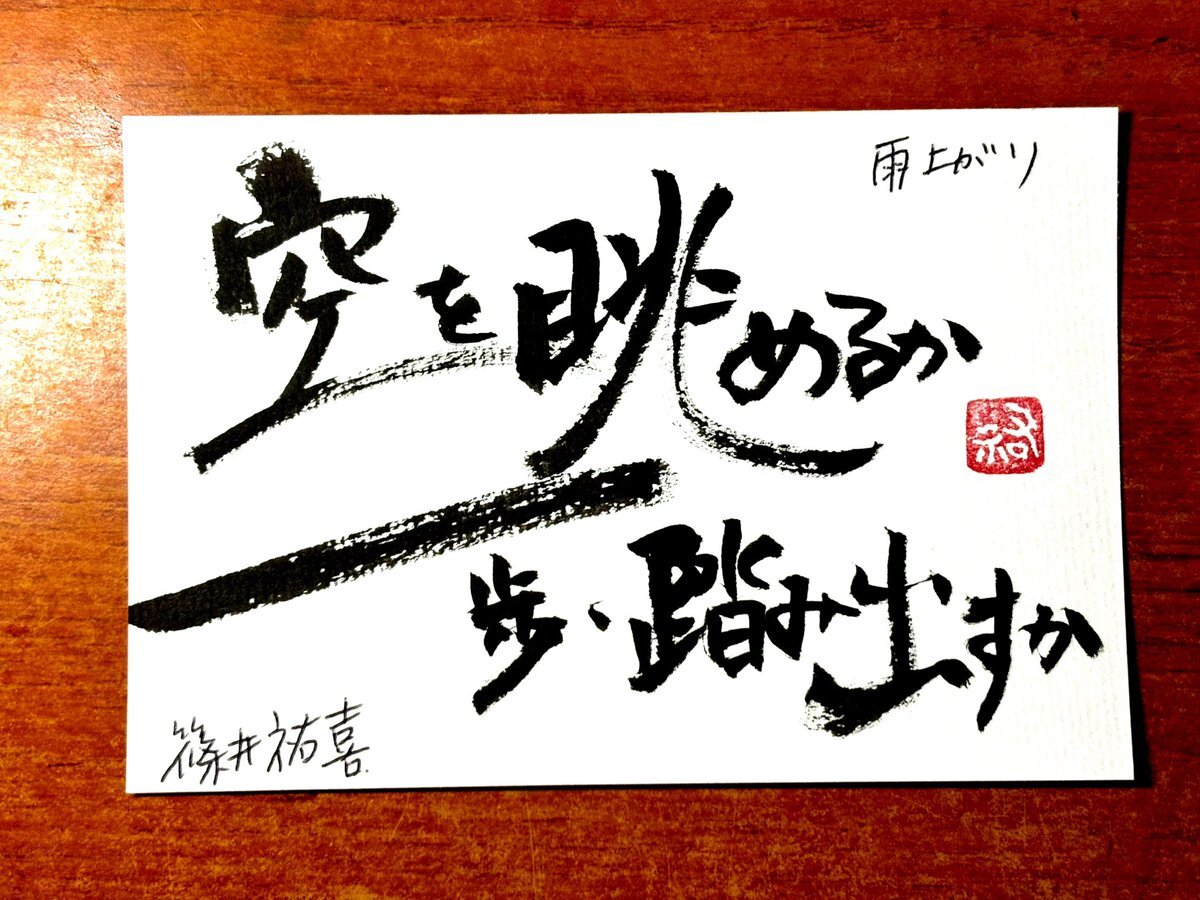 雨上がり
空を眺めるか
一歩、踏み出すか
篠井祐喜